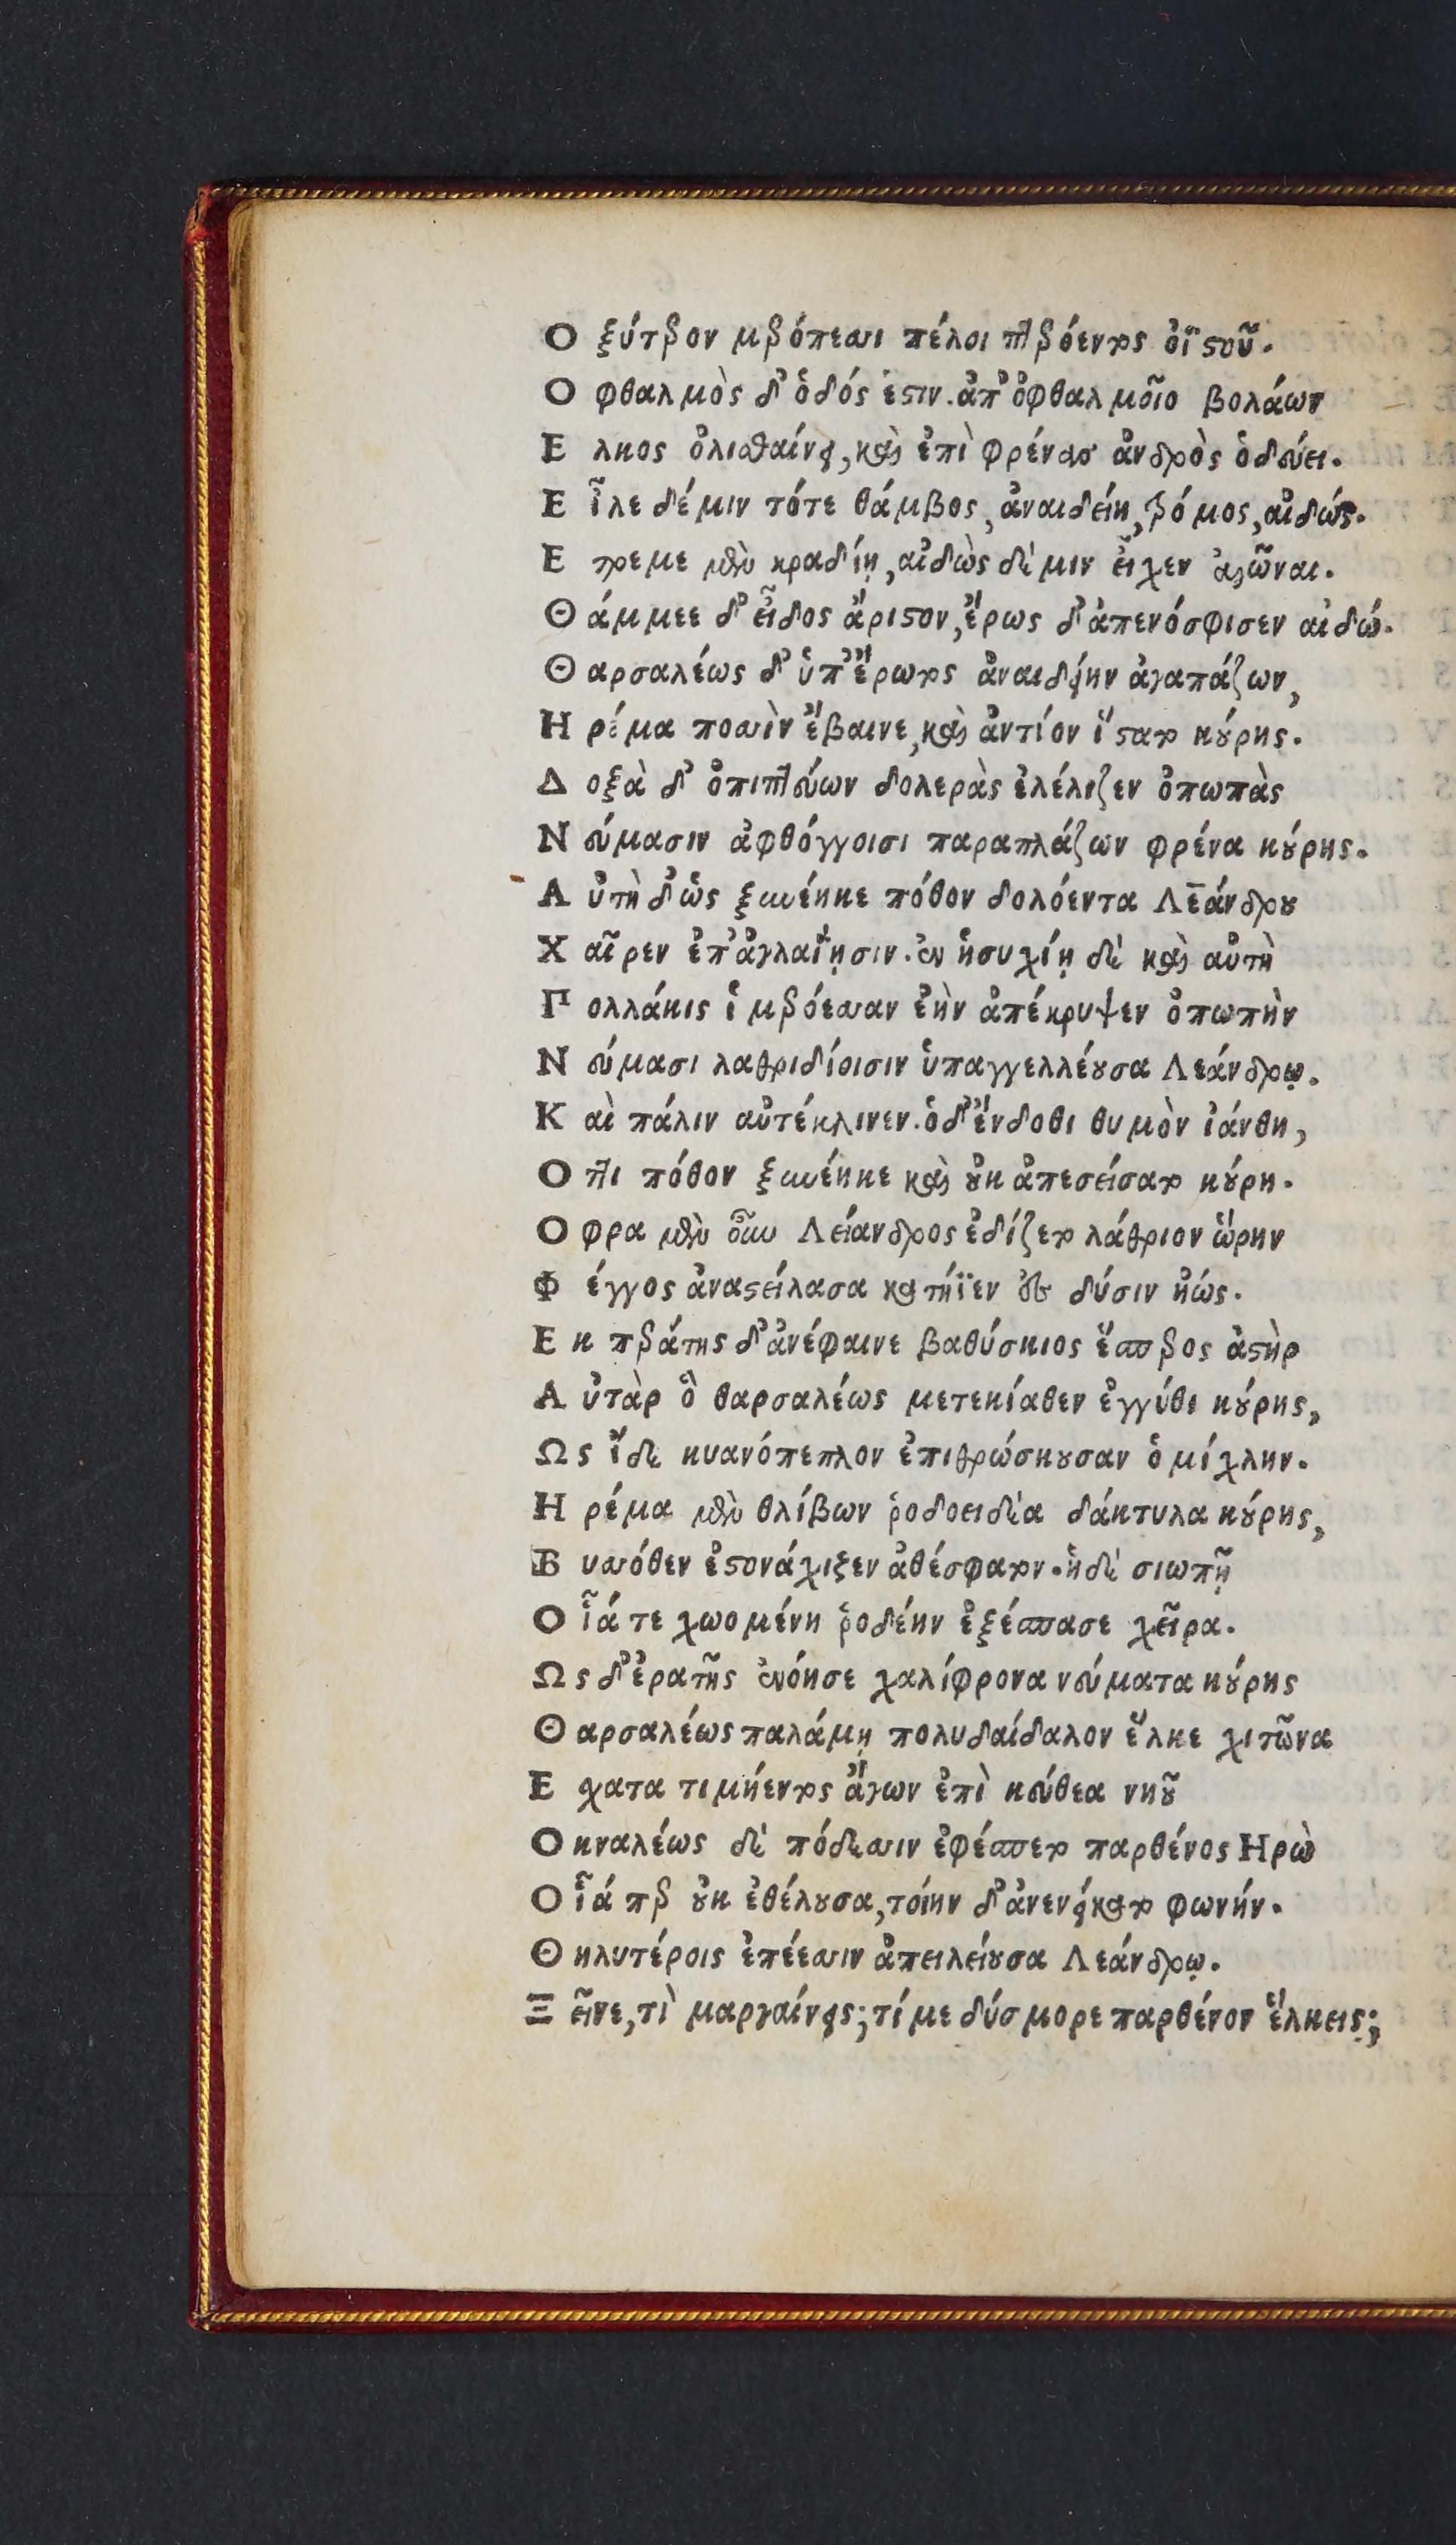 Ο ξύτερον μερόπεσσι πέλοι πτερόεντος ὀϊστοῦ.
Ο φθαλμὸς δ' ὁδός ἐστιν. ἀπ' ὀφθαλμοῖο βολάων
Ε λκος ὀλισθαίνει, καὶ ἐπὶ φρένας ἀνδρὸς ὁδεύει.
Ε ἷλε δέ μιν τότε θάμβος, ἀναιδείη, τρόμος, αἰδώς.
Ε τρεμε μὲν κραδίη, αἰδὼς δέ μιν εἶχεν ἁλῶναι.
Θ άμμεε δ' εἶδος ἄριστον, ἔρως δ' ἀπενόσφισεν αἰδώ.
Θ αρσαλέως δ' ὑπ' ἔρωτος ἀναιδείην ἀγαπάζων,
Η ρέμα ποσσὶν ἔβαινε, καὶ ἀντίον ἵστατο κούρης.
Δ οξὰ δ' ὀπιπτεύων δολερὰς ἐλέλιζεν ὀπωπὰς
Ν εύμασιν ἀφθόγγοισι παραπλάζων φρένα κούρης.
Α ὐτὴ δ' ὡς ξυνέηκε πόθον δολόεντα Λεάνδρου
Χ αῖρεν ἐπ' ἀγλαΐησιν. ἐν ἡσυχίῃ δὲ καὶ αὐτὴ
Π ολλάκις ἱμερόεσσαν ἑὴν ἀπέκρυψεν ὀπωπὴν
Ν εύμασι λαθριδίοισιν ὑπαγγελλέουσα Λεάνδρῳ.
Κ αὶ πάλιν αὐτέκλινεν. ὁ δ' ἔνδοθι θυμὸν ἰάνθη,
Ο ττι πόθον ξυνέηκε καὶ οὐκ ἀπεσείσατο κούρη.
Ο φρα μὲν οὖν Λείανδρος ἐδίζετο λάθριον ὥρην
Φ έγγος ἀναστείλασα κατήϊεν εἰς δύσιν ἠώς.
Ε κ περάτης δ' ἀνέφαινε βαθύσκιος ἕσπερος ἀστὴρ
Α ὐτὰρ ὃ θαρσαλέως μετεκίαθεν ἐγγύθι κούρης,
Ως ἴδε κυανόπεπλον ἐπιθρώσκουσαν ὁμίχλην.
Η ρέμα μὲν θλίβων ῥοδοειδέα δάκτυλα κούρης,
Β υσσόθεν ἐστονάχιξεν ἀθέσφατον. ἡ δὲ σιωπῇ
Ο ἷά τε χωομένη ῥοδέην ἐξέσπασε χεῖρα.
Ως δ' ἐρατῆς ἐνόησε χαλίφρονα νεύματα κούρης
Θ αρσαλέως παλάμῃ πολυδαίδαλον ἕλκε χιτῶνα
Ε χατα τιμήεντος ἄγων ἐπὶ κεύθεα νηοῦ
Ο κναλέως δὲ πόδεσσιν ἐφέσπετο παρθένος Ηρὼ
Ο ἷά περ οὐκ ἐθέλουσα, τοίην δ' ἀνενείκατο φωνήν.
Θ ηλυτέροις ἐπέεσσιν ἀπειλείουσα Λεάνδρῳ.
Ξ εῖνε, τὶ μαργαίνεις; τί με δύσμορε παρθένον ἕλκεις;